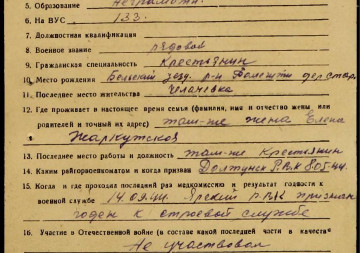 5. Образование неграмотн.
6. На ВУС 133.
7. Должностная квалификация
8. Военное звание рядовой
9. Гражданская специальность Крестьянин
10. Место рождения Бельский уезд. р-н Фалешты дер. стар.
11. Последнее место жительства Челановка
12. Где проживает в настоящее время семья (фамилия, имя и отчество жены или
родителей и точный их адрес) там-же жена Елена
Жаркутской
13. Последнее место работы и должность там-же Крестьянин
14. Каким райгорвоенкоматом и когда призван РВК
15. Когда и где проходил последний раз медкомиссию и результат годности к
военной службе 14.09.44. РВК признан
годен к строевой службе
16. Участие в Отечественной войне (в составе какой последней части в качеств
Не участвовал